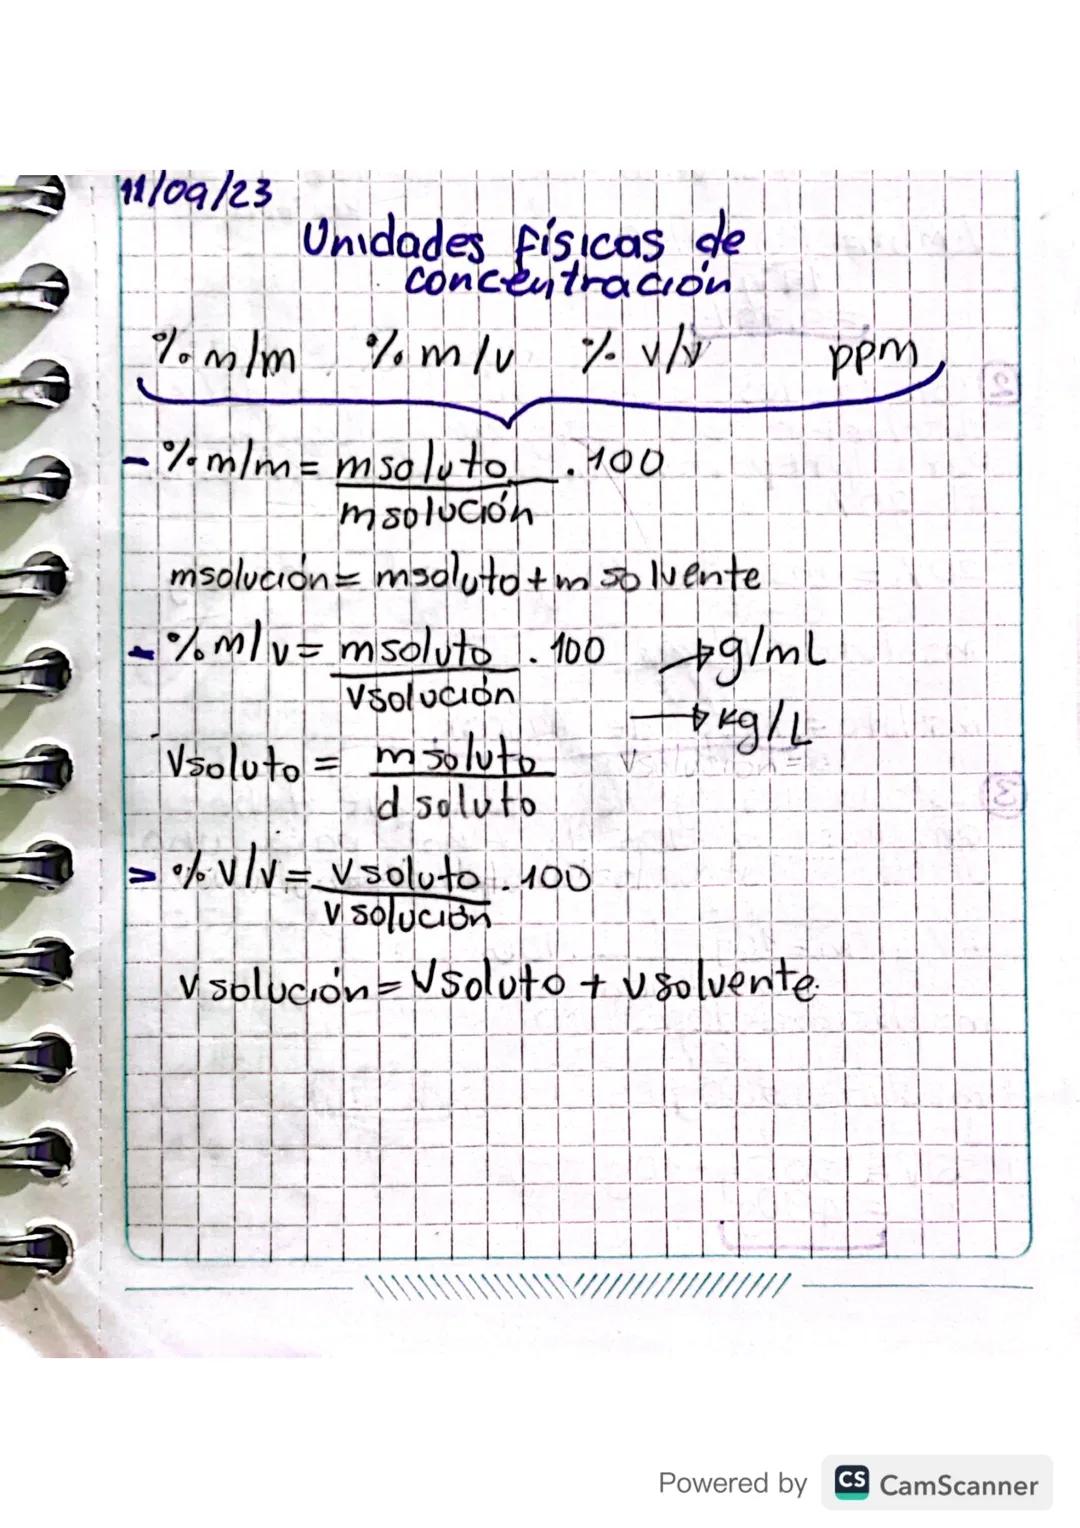 11/09/23
Unidades físicas de
concentración
% m/m % m/v % v/v ppm
- % m/m = msoluto . 100
msolución
msolución = msoluto + msolvente
- % m/v = msoluto . 100 → g/mL
Vsolución → kg/L
Vsoluto = msoluto
dsoluto
= % V/V = Vsoluto . 100
Vsolución
Vsolución = Vsoluto + Vsolvente.
Powered by CS CamScanner